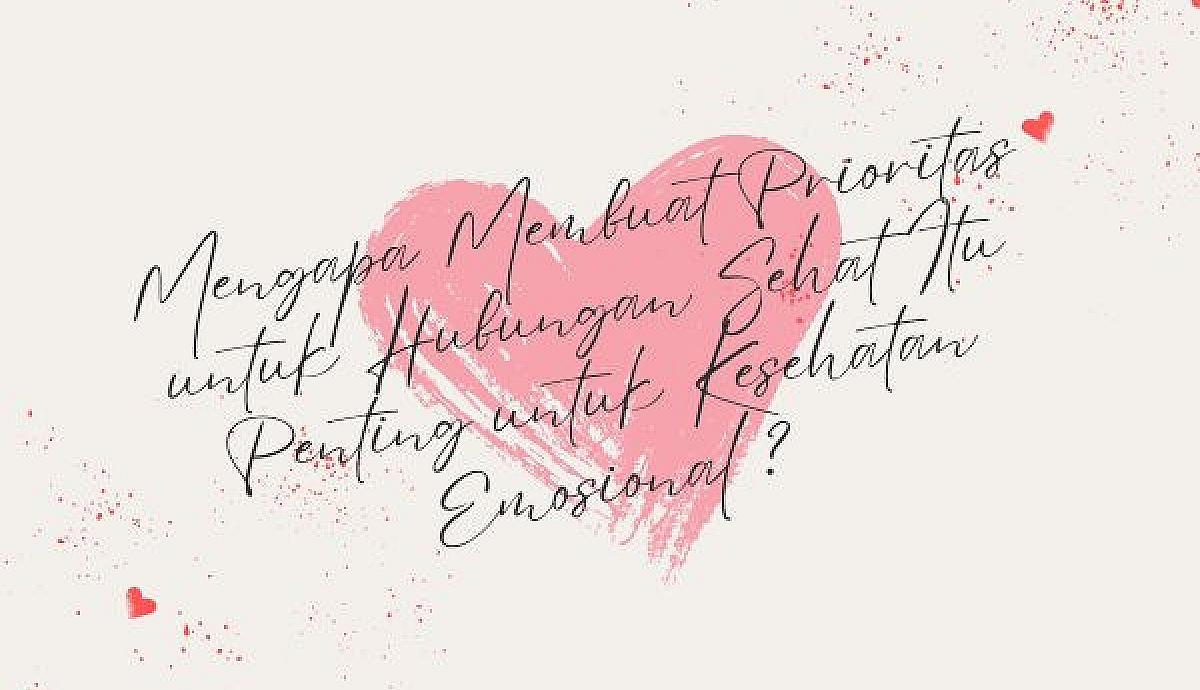 Mengapa Membuat Prioritas
untuk Hubungan Sehat Itu
Penting untuk Kesehatan
Emosional ?